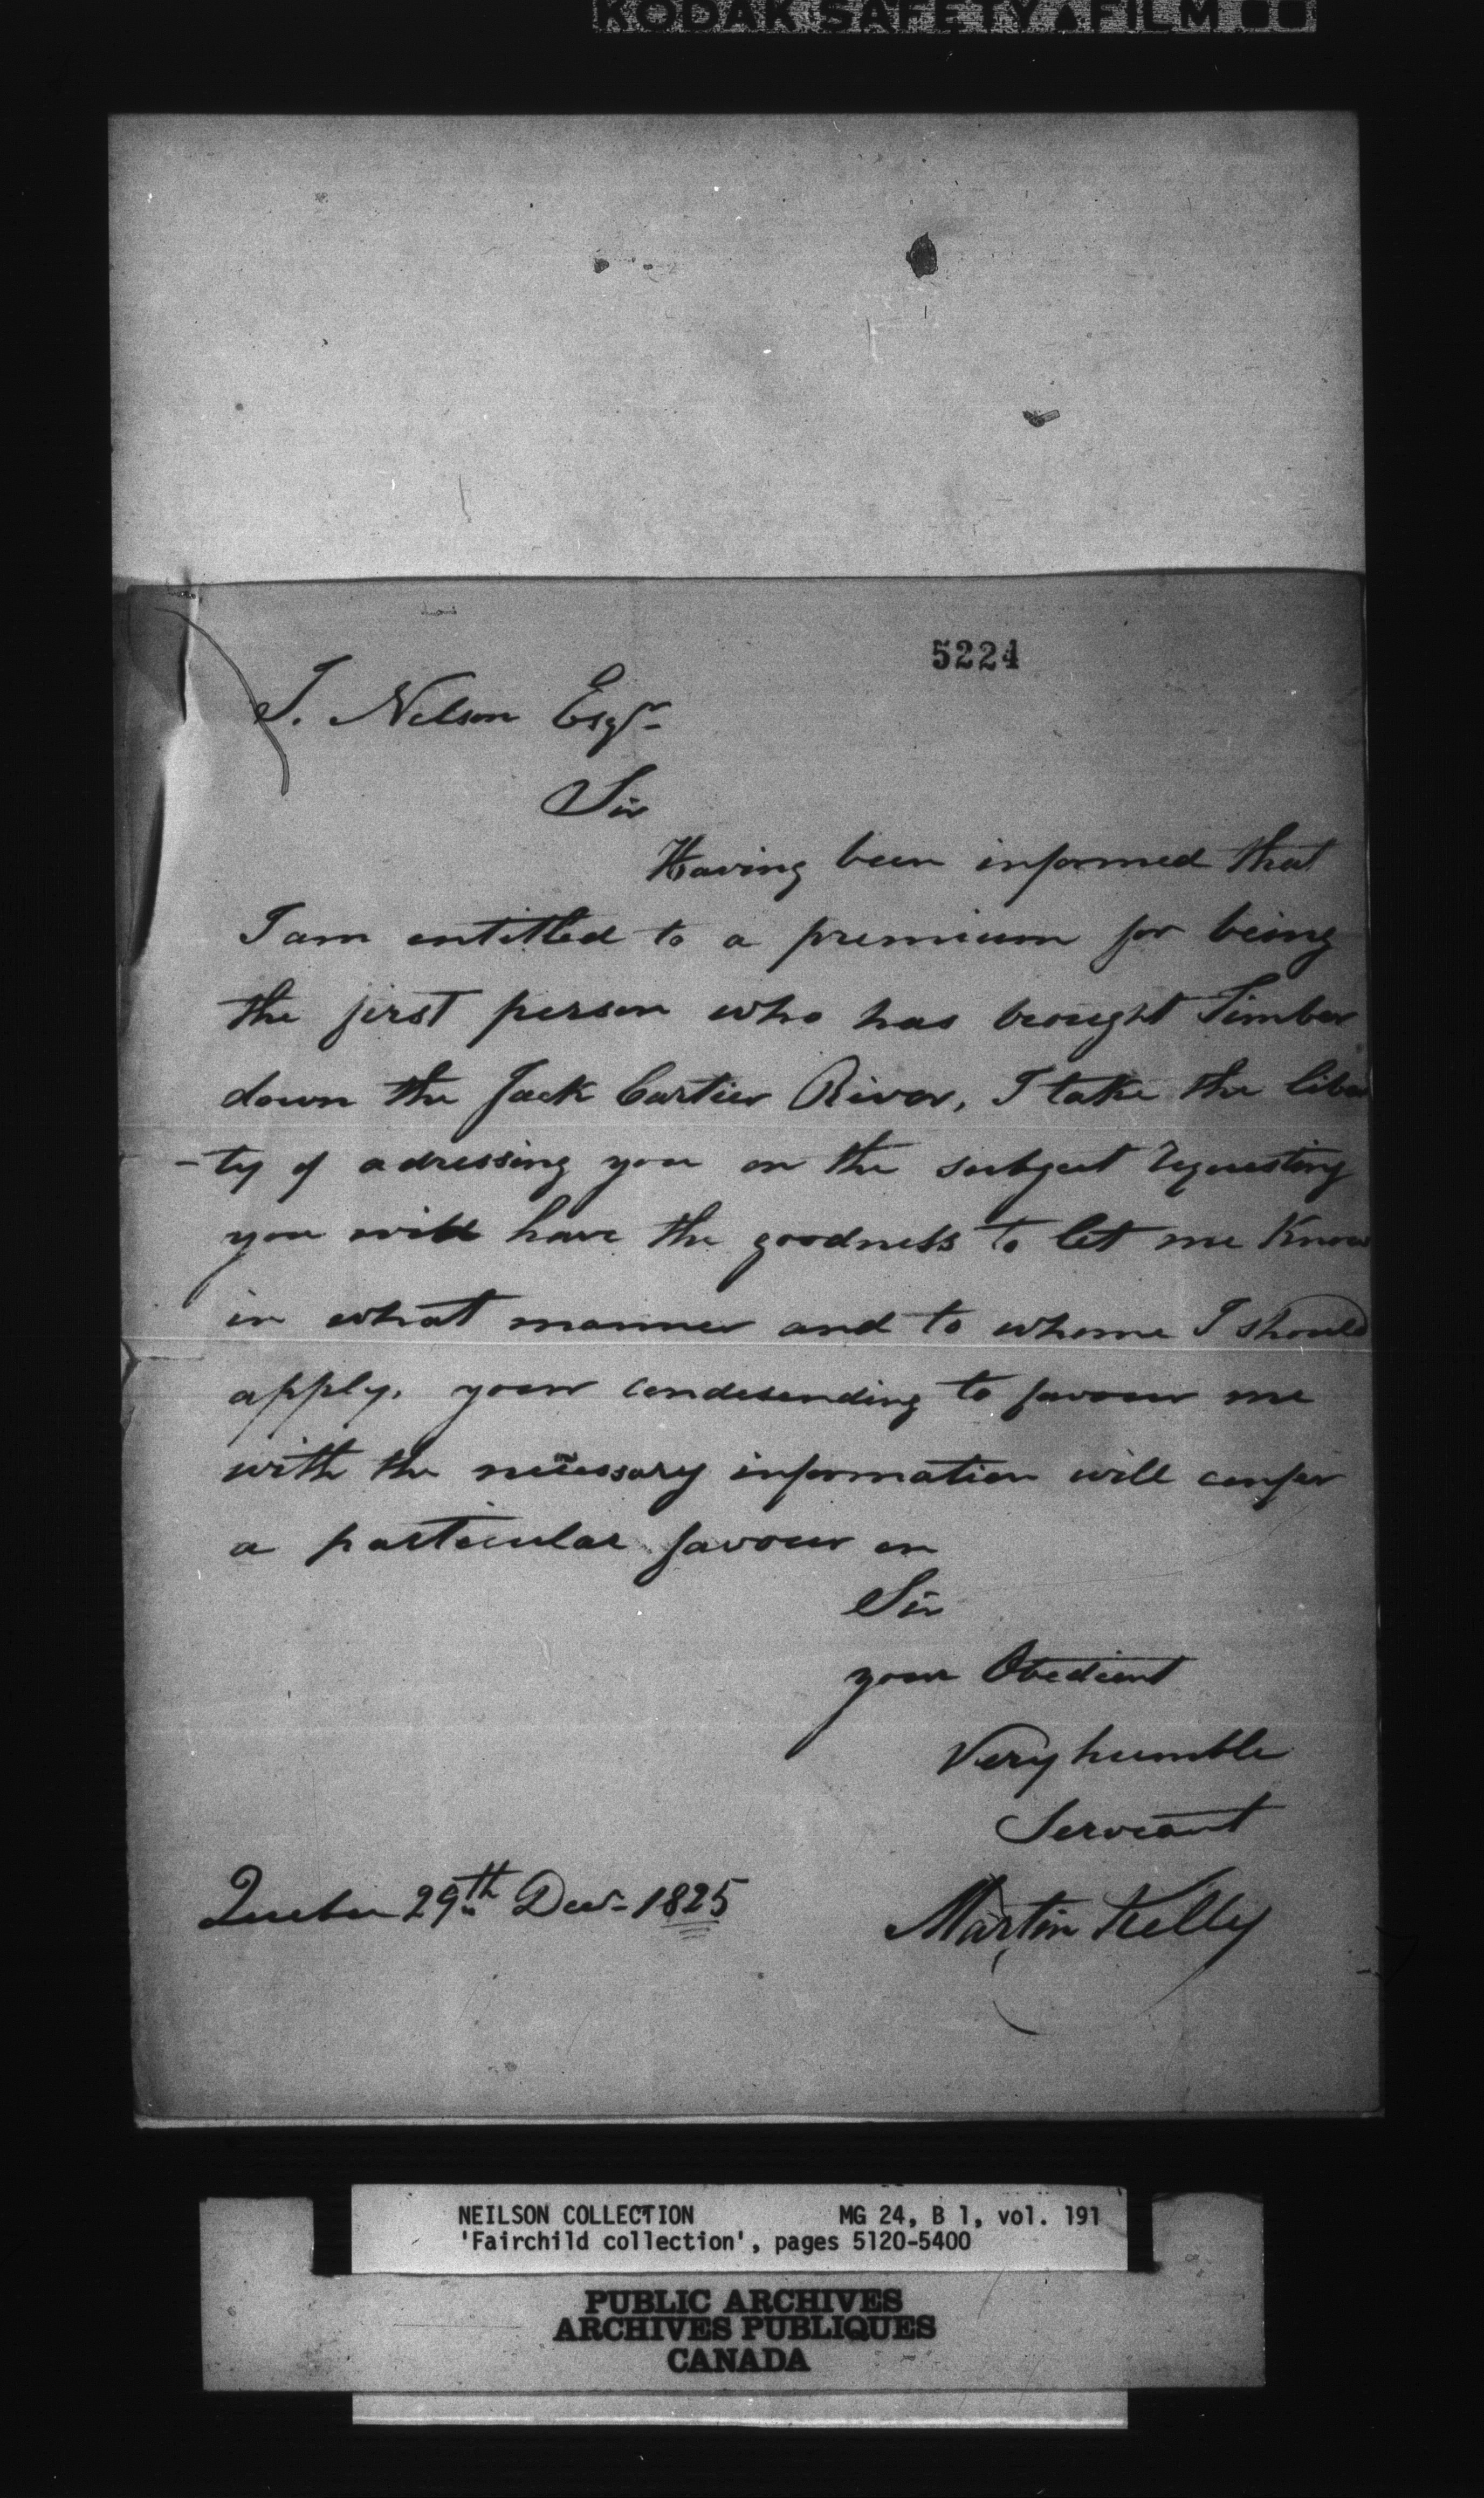 KODAK SAFETY ▲ FILM
5224
J. Nelson Esqr
Sir
Having been informed that
I am entitled to a premium for being
the first person who has brought Timber
down the Jack Cartier River, I take the liber
-ty of adressing you on the subject requesting
you will have the goodness to let me Know
in what manner and to whome I should
apply. your condesending to favour me
with the necessary information will confer
a particular favour on
Sir
your Obedient
Very humble
Servant
Quebec 29th Decr 1825
Martin Kelly
NEILSON COLLECTION MG 24, B 1, vol. 191
'Fairchild collection', pages 5120-5400
PUBLIC ARCHIVES
ARCHIVES PUBLIQUES
CANADA